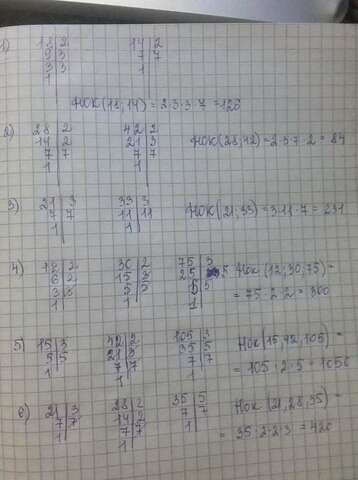 1) 18 | 2   14 | 2
9 | 3   7 | 7
3 | 3   1
1
НОК (18, 14) = 2·3·3·7 = 126
2) 28 | 2   42 | 2   НОК (28, 42) = 2·3·7·2 = 84
14 | 2   21 | 3
7 | 7   7 | 7
1   1
3) 21 | 3   33 | 3   НОК (21, 33) = 3·11·7 = 231
7 | 7   11 | 11
1   1
4) 12 | 2   30 | 2   75 | 3   НОК (12, 30, 75) =
6 | 2   15 | 3   25 | 5   = 75·2·2 = 300
3 | 3   5 | 5   5 | 5
1   1   1
5) 15 | 3   42 | 2   105 | 3   НОК (15, 42, 105) =
5 | 5   21 | 3   35 | 5   = 105·2·5 = 1050
1   7 | 7   7 | 7
1   1
6) 21 | 3   28 | 2   35 | 5   НОК (21, 28, 35) =
7 | 7   14 | 2   7 | 7   = 35·2·2·3 = 420
1   7 | 7   1
1